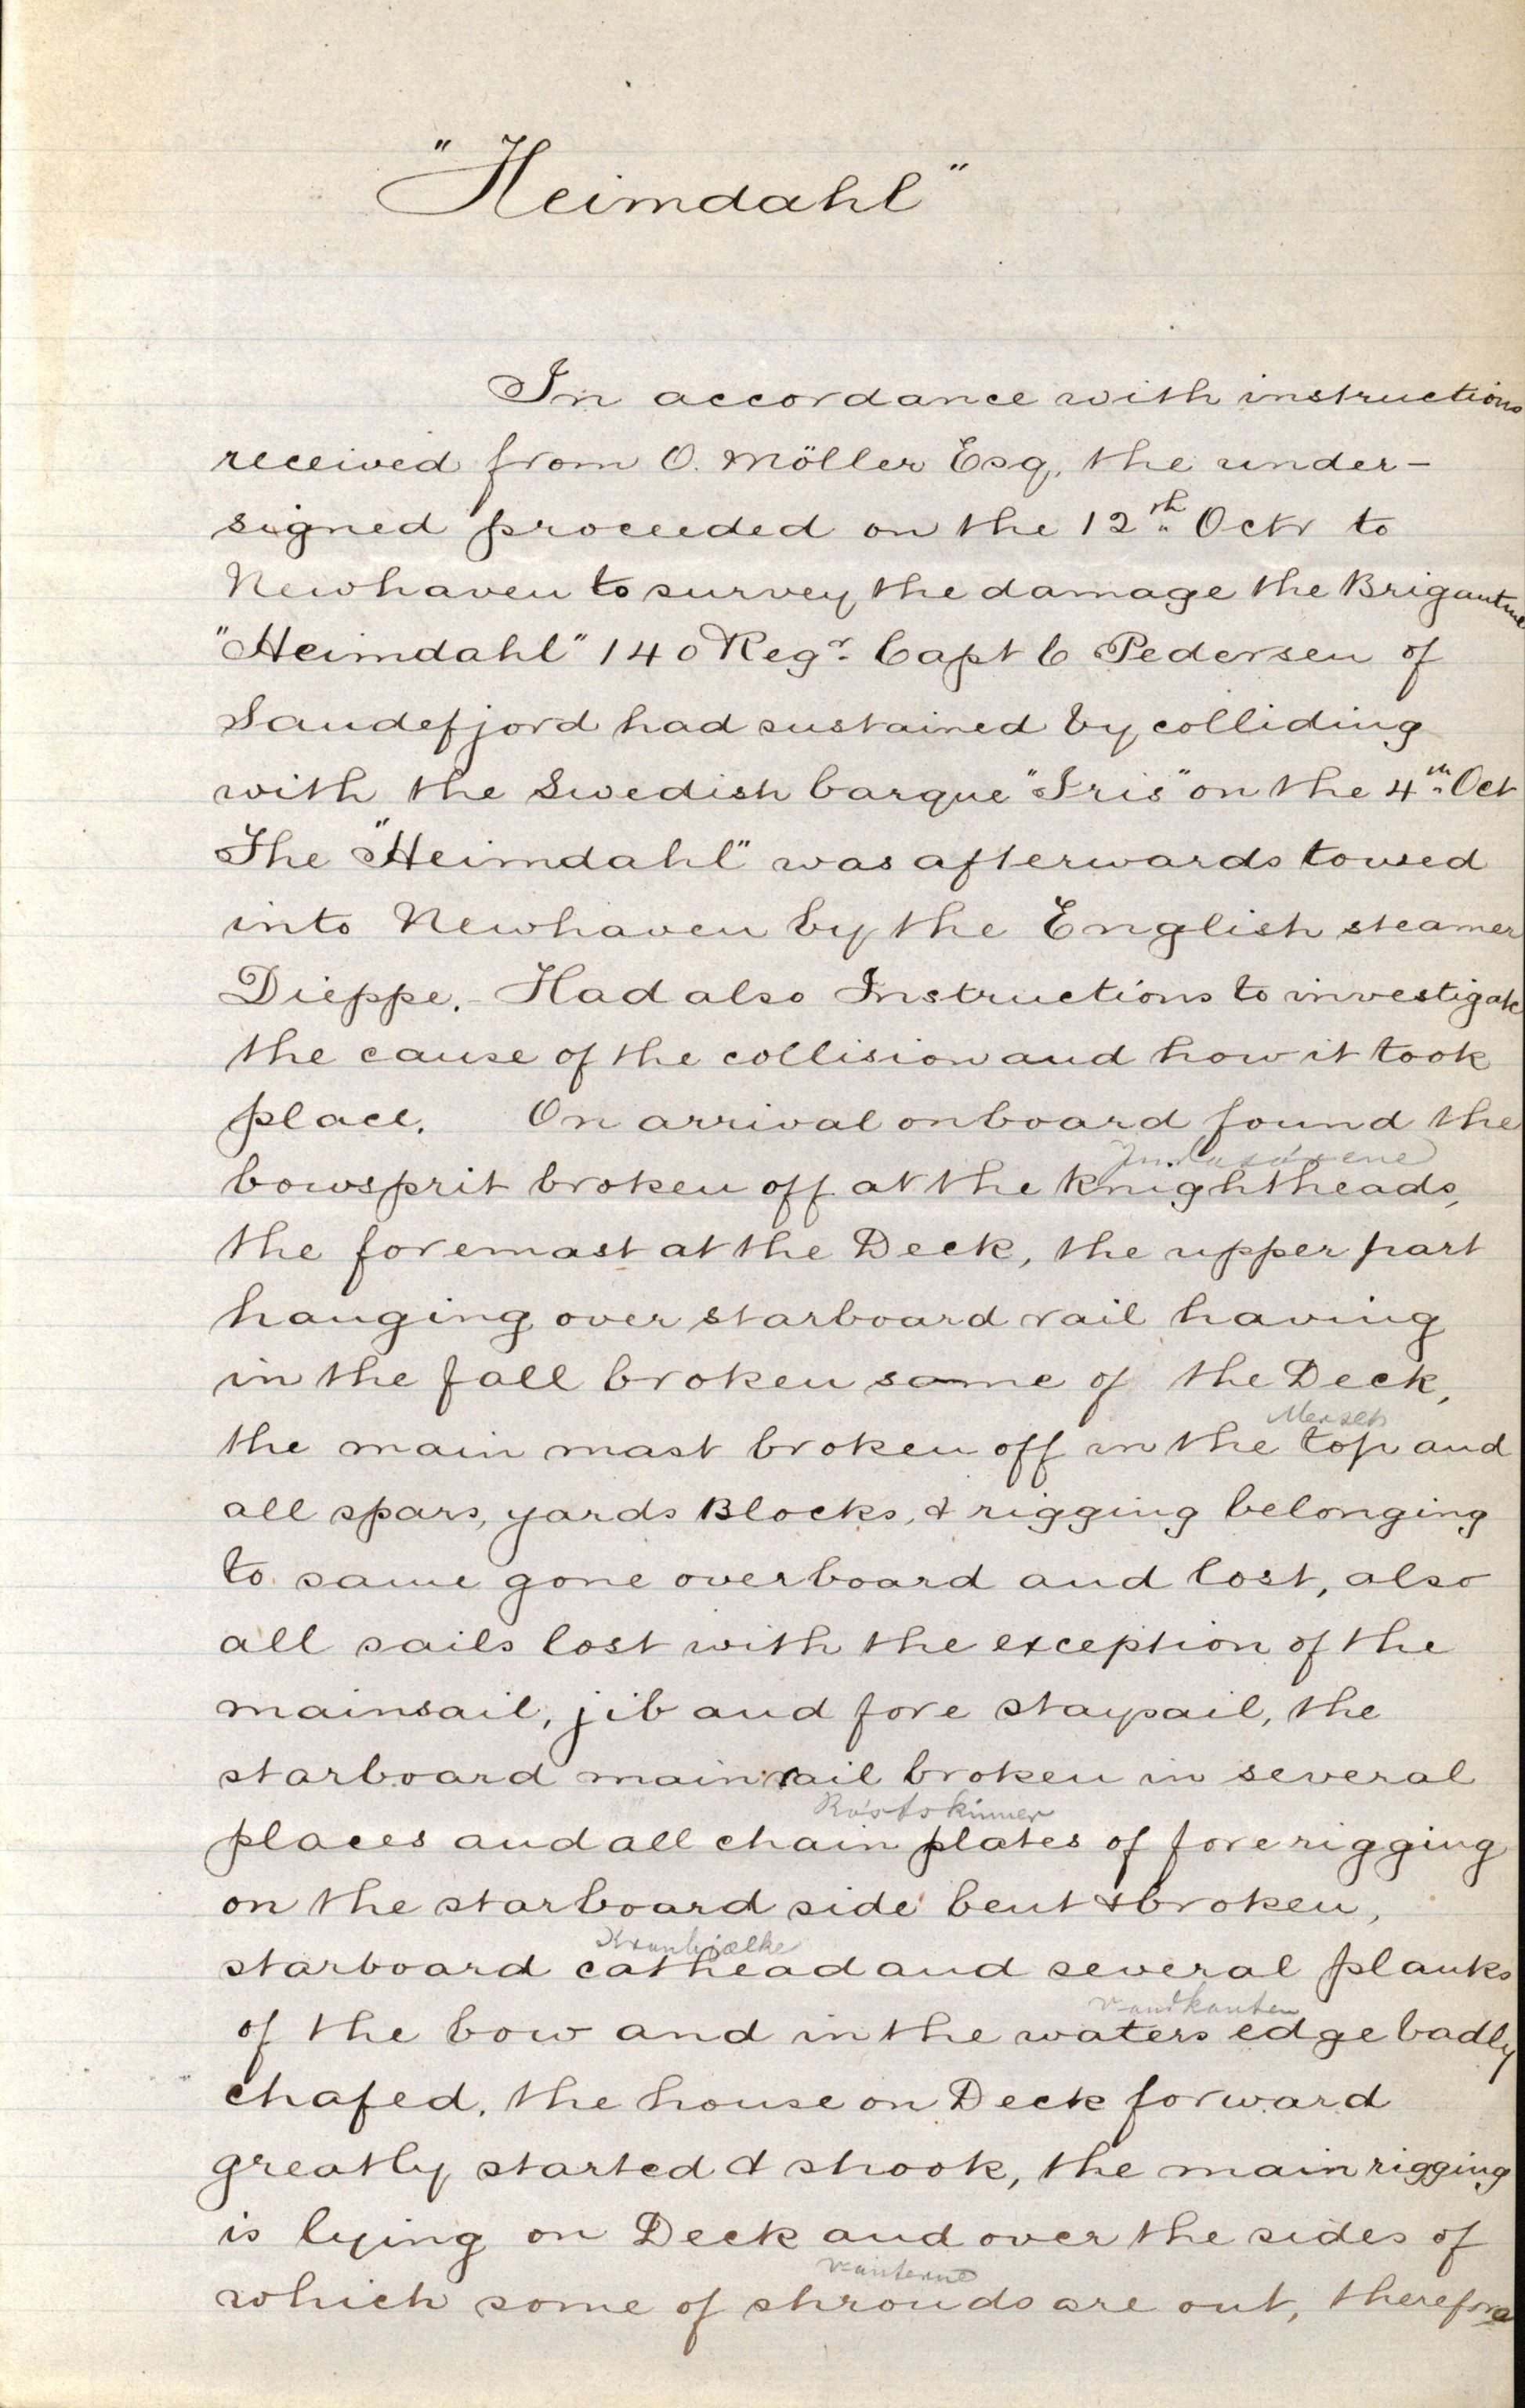 "Heimdahl"
In accordance with instructions
received from O. Möller Esq, the under-
signed proceeded on the 12th Octr to
Newhaven to survey the damage the Brigantine
"Heimdahl" 140 Regr. Capt C Pedersen of
Sandefjord had sustained by colliding
with the Swedish barque "Iris" on the 4th Oct
The "Heimdahl" was afterwards towed
into Newhaven by the English steamer
Dieppe. - Had also Instructions to investigate
the cause of the collision and how it took
place. On arrival onboard found the
bowsprit broken off at the Knightheads,
the foremast at the Deck, the upper part
hanging over starboard rail having
in the fall broken some of the Deck,
Merset
the main mast broken off in the top and
all spars, yards Blocks, & rigging belonging
to same gone overboard and lost, also
all sails lost with the exception of the
mainsail, jib and fore staysail, the
starboard main rail broken in several
Røstskinner
places and all chain plates of fore rigging
on the starboard side bent & broken,
Kranbjælke
starboard cathead and several planks
Vandkanten
of the bow and in the waters edge badly
chafed. the house on Deck forward
greatly started & shook, the main rigging
is lying on Deck and over the sides of
Vanterne
which some of shrouds are out, therefore